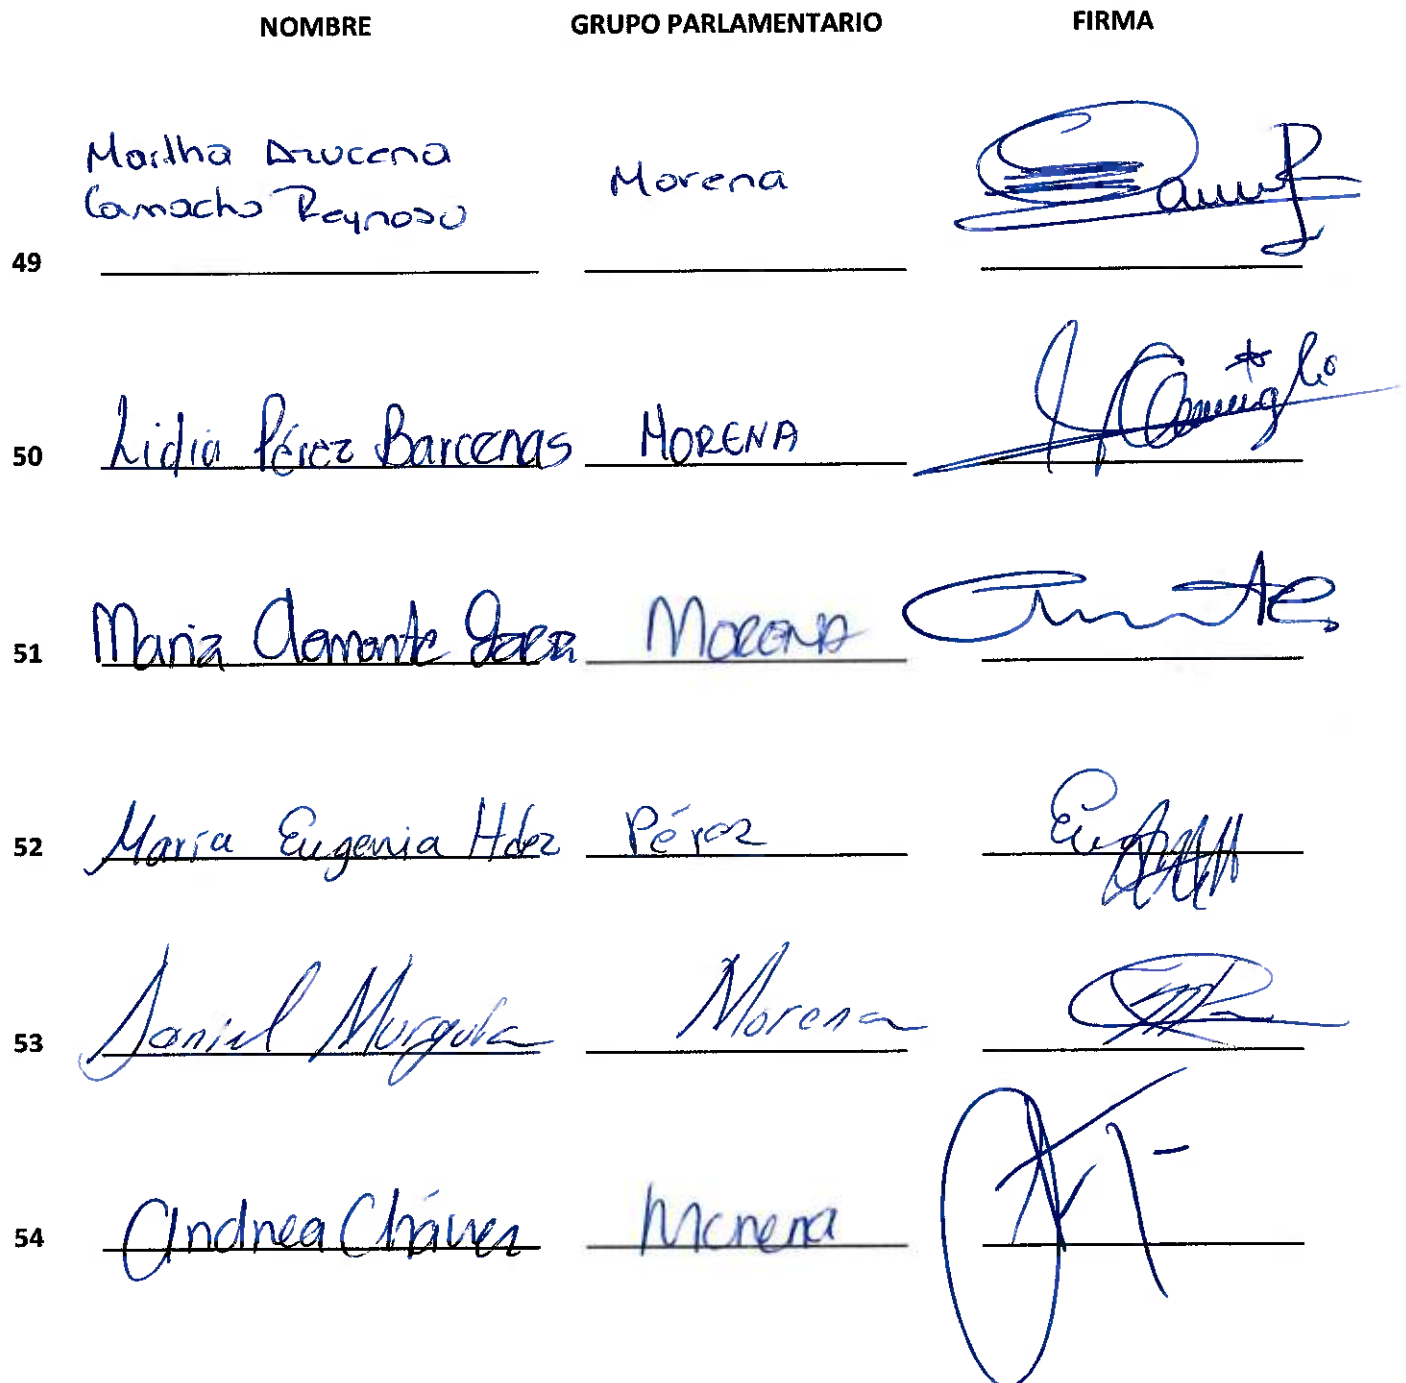 NOMBRE GRUPO PARLAMENTARIO FIRMA
Martha Azucena
Camacho Reynoso Morena
49
50 Lidia Pérez Barcenas MORENA
51 Maria Clemente MORENA
52 María Eugenia Hdez Pérez
53 Daniel Murguía Morena
54 Andrea Chávez Morena